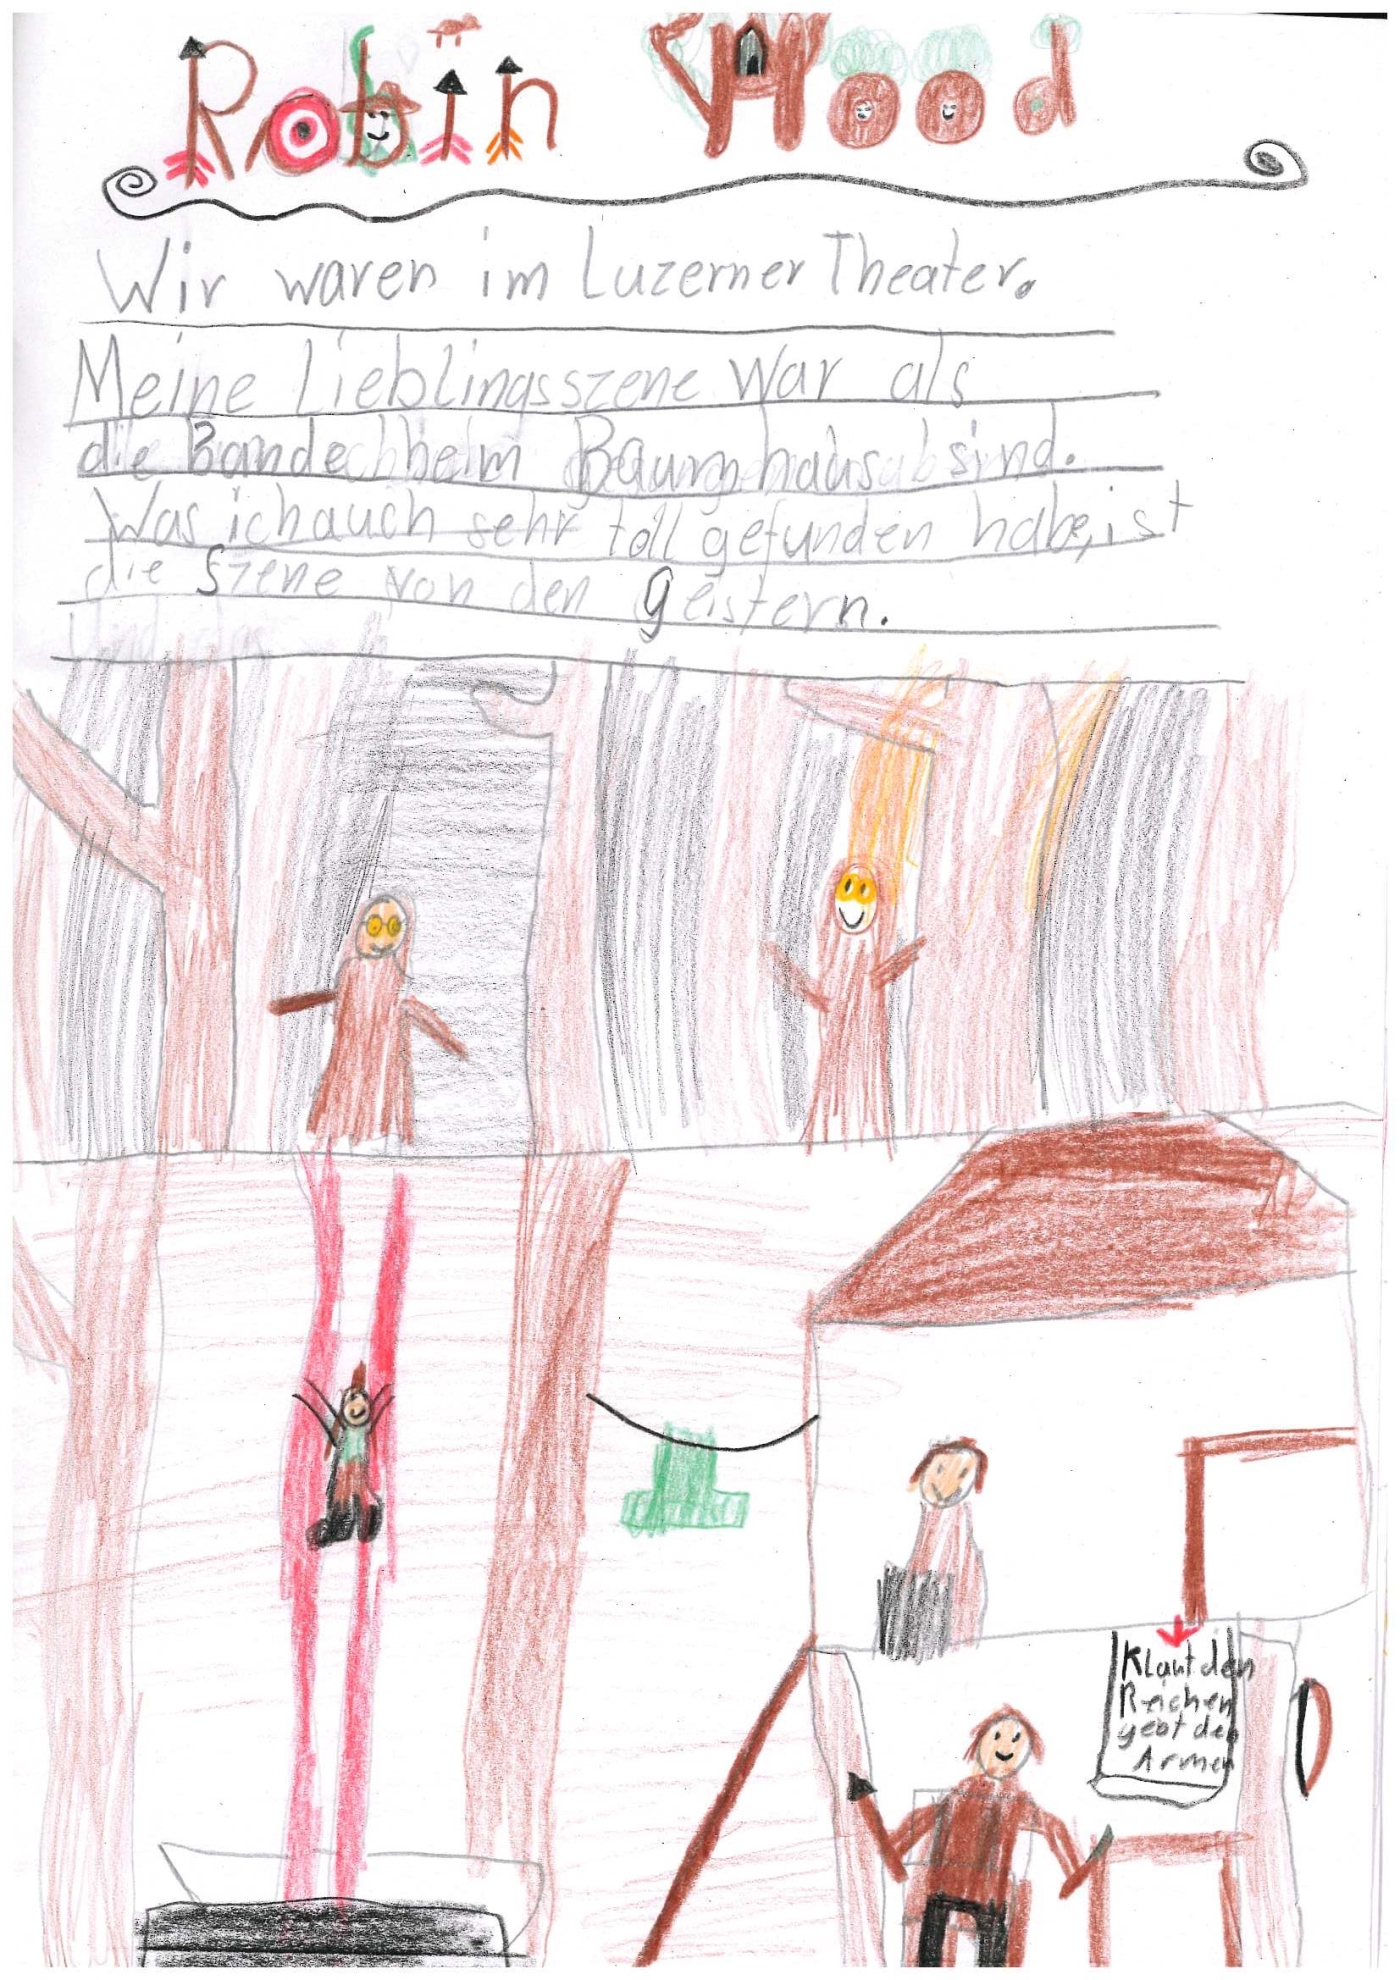 Robin Hood
Wir waren im Luzerner Theater.
Meine Lieblingsszene war als
die Bande beim Baumhaus sind.
Was ich auch sehr toll gefunden habe, ist
die Szene von den geistern.
Klaut den
Reichen
gebt den
Armen